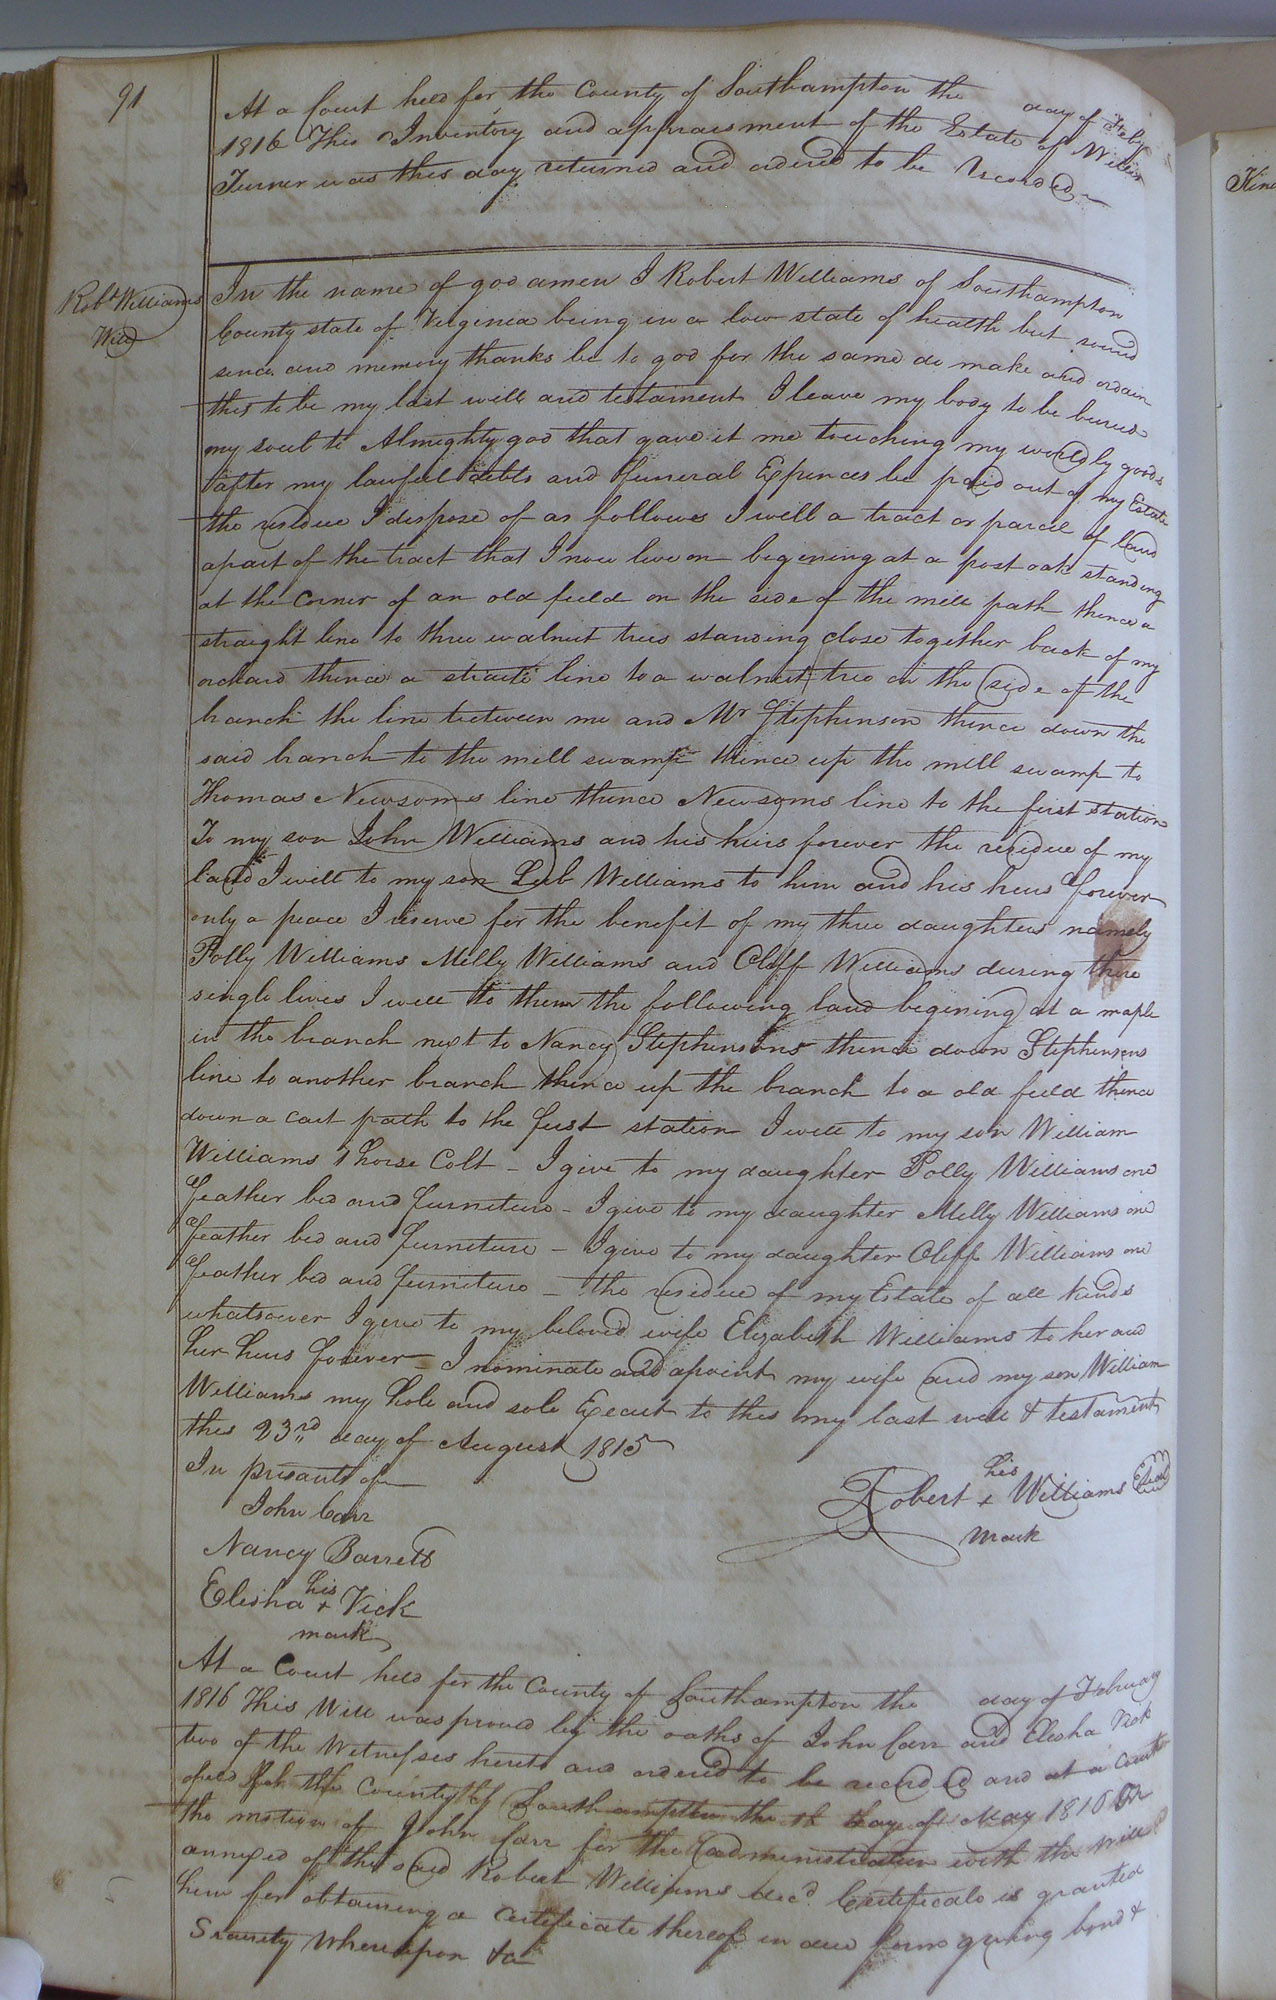 91
At a Court held for the County of Southampton the day of Feby
1816 This Inventory and appraisment of the Estate of Willis
Turner was this day returned and ordered to be Recorded
Robt Williams
Will
In the name of god amen I Robert Williams of Southampton
County state of Virginia being in a low state of health but sound
sence and memory thanks be to god for the same do make and ordain
this to be my last will and testament I leave my body to be buried
my soul to Almighty god that gave it me touching my worldly goods
after my lawfull debts and funeral Expences be paid out of my Estate
the residue I dispose of as follows I will a tract or parcel of land
apart of the tract that I now live on begining at a post oak standing
at the Corner of an old field on the side of the mill path thence a
straight line to three walnut trees standing close together back of my
orchard thence a straite line to a walnut tree on the side of the
branch the line between me and Mr Stephenson thence down the
said branch to the mill swamp thence up the mill swamp to
Thomas Newsoms line thence Newsoms line to the first station
To my son John Williams and his heirs forever the residue of my
land I will to my son Williams to him and his heirs forever
only a peace I reserve for the benefit of my three daughters namely
Polly Williams Milly Williams and Cliff Williams during there
single lives I will to them the following land begining at a maple
in the branch next to Nancy Stephensons thence down Stephensons
line to another branch thence up the branch to a old field thence
down a cart path to the first station I will to my son William
Williams 1 horse Colt - I give to my daughter Polly Williams one
feather bed and furniture - I give to my daughter Milly Williams one
feather bed and furniture - I give to my daughter Cliff Williams one
feather bed and furniture - the residue of my Estate of all kinds
whatsoever I give to my beloved wife Elizabeth Williams to her and
her heirs forever - I nominate and apoint my wife and my son William
Williams my hole and sole Execut to this my last will & testament
this 23rd day of August 1815
In prisants of
John Carr
Nancy Barrett
Elisha his + Vick
mark
Robert his + Williams Seal
mark
At a Court held for the County of Southampton the day of February
1816 This Will was proved by the oaths of John Carr and Elisha Vick
two of the Witnesses hereto and ordered to be recorded and at a Court
held for the County of Southampton the day of May 1816 On
the motion of John Carr for the administration with the Will
annexed of the said Robert Williams decd Certificate is granted
him for obtaining a Certificate thereof in due form giving bond &
Security Whereupon &c